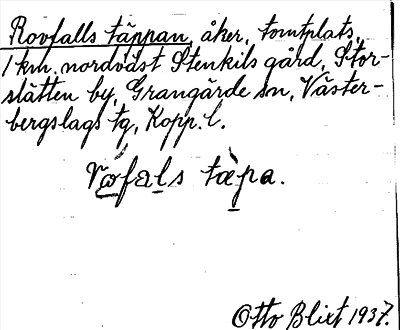 Rovfalls täppan, åker, tomtplats,
1 km. nordväst Stenkils gård, Stor-
slätten by, Grangärde sn, Väster-
bergslags tg, Kopp. l.
Otto Blixt 1937.